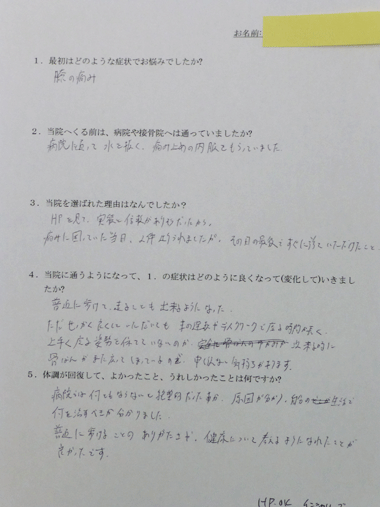 お名前:
1．最初はどのような症状でお悩みでしたか?
膝の痛み
2．当院へくる前は、病院や接骨院へは通っていましたか?
病院に通って 水を抜く、痛み止めの内服をもらっていました
3．当院を選ばれた理由はなんでしたか?
HPを見て、実家と住家がありむだったから。
痛みに困っていた当日、人伸 ようわれましたが、その日の最後ですぐに診ていただけたこと
4．当院に通うようになって、1．の症状はどのように良くなって(変化して)いきまし
たか?
普通に歩けて、走ることも出来るようになった。
ただ せっかく良くしていただいても 車の運転やデスクワークで座る時間が長く、
上手く座る姿勢を保てていないのか、 出来る時に
骨ばんがまた していまっているため、申しわけない気持ちがあります。
5．体調が回復して、よかったこと、うれしかったことは何ですか?
病院では何でもないと 原因が分かり、
何を治すべきか分かりました。
普通に歩けることの ありがたさが、健康について考えるようになれたことが
良かったです。
HP.OK